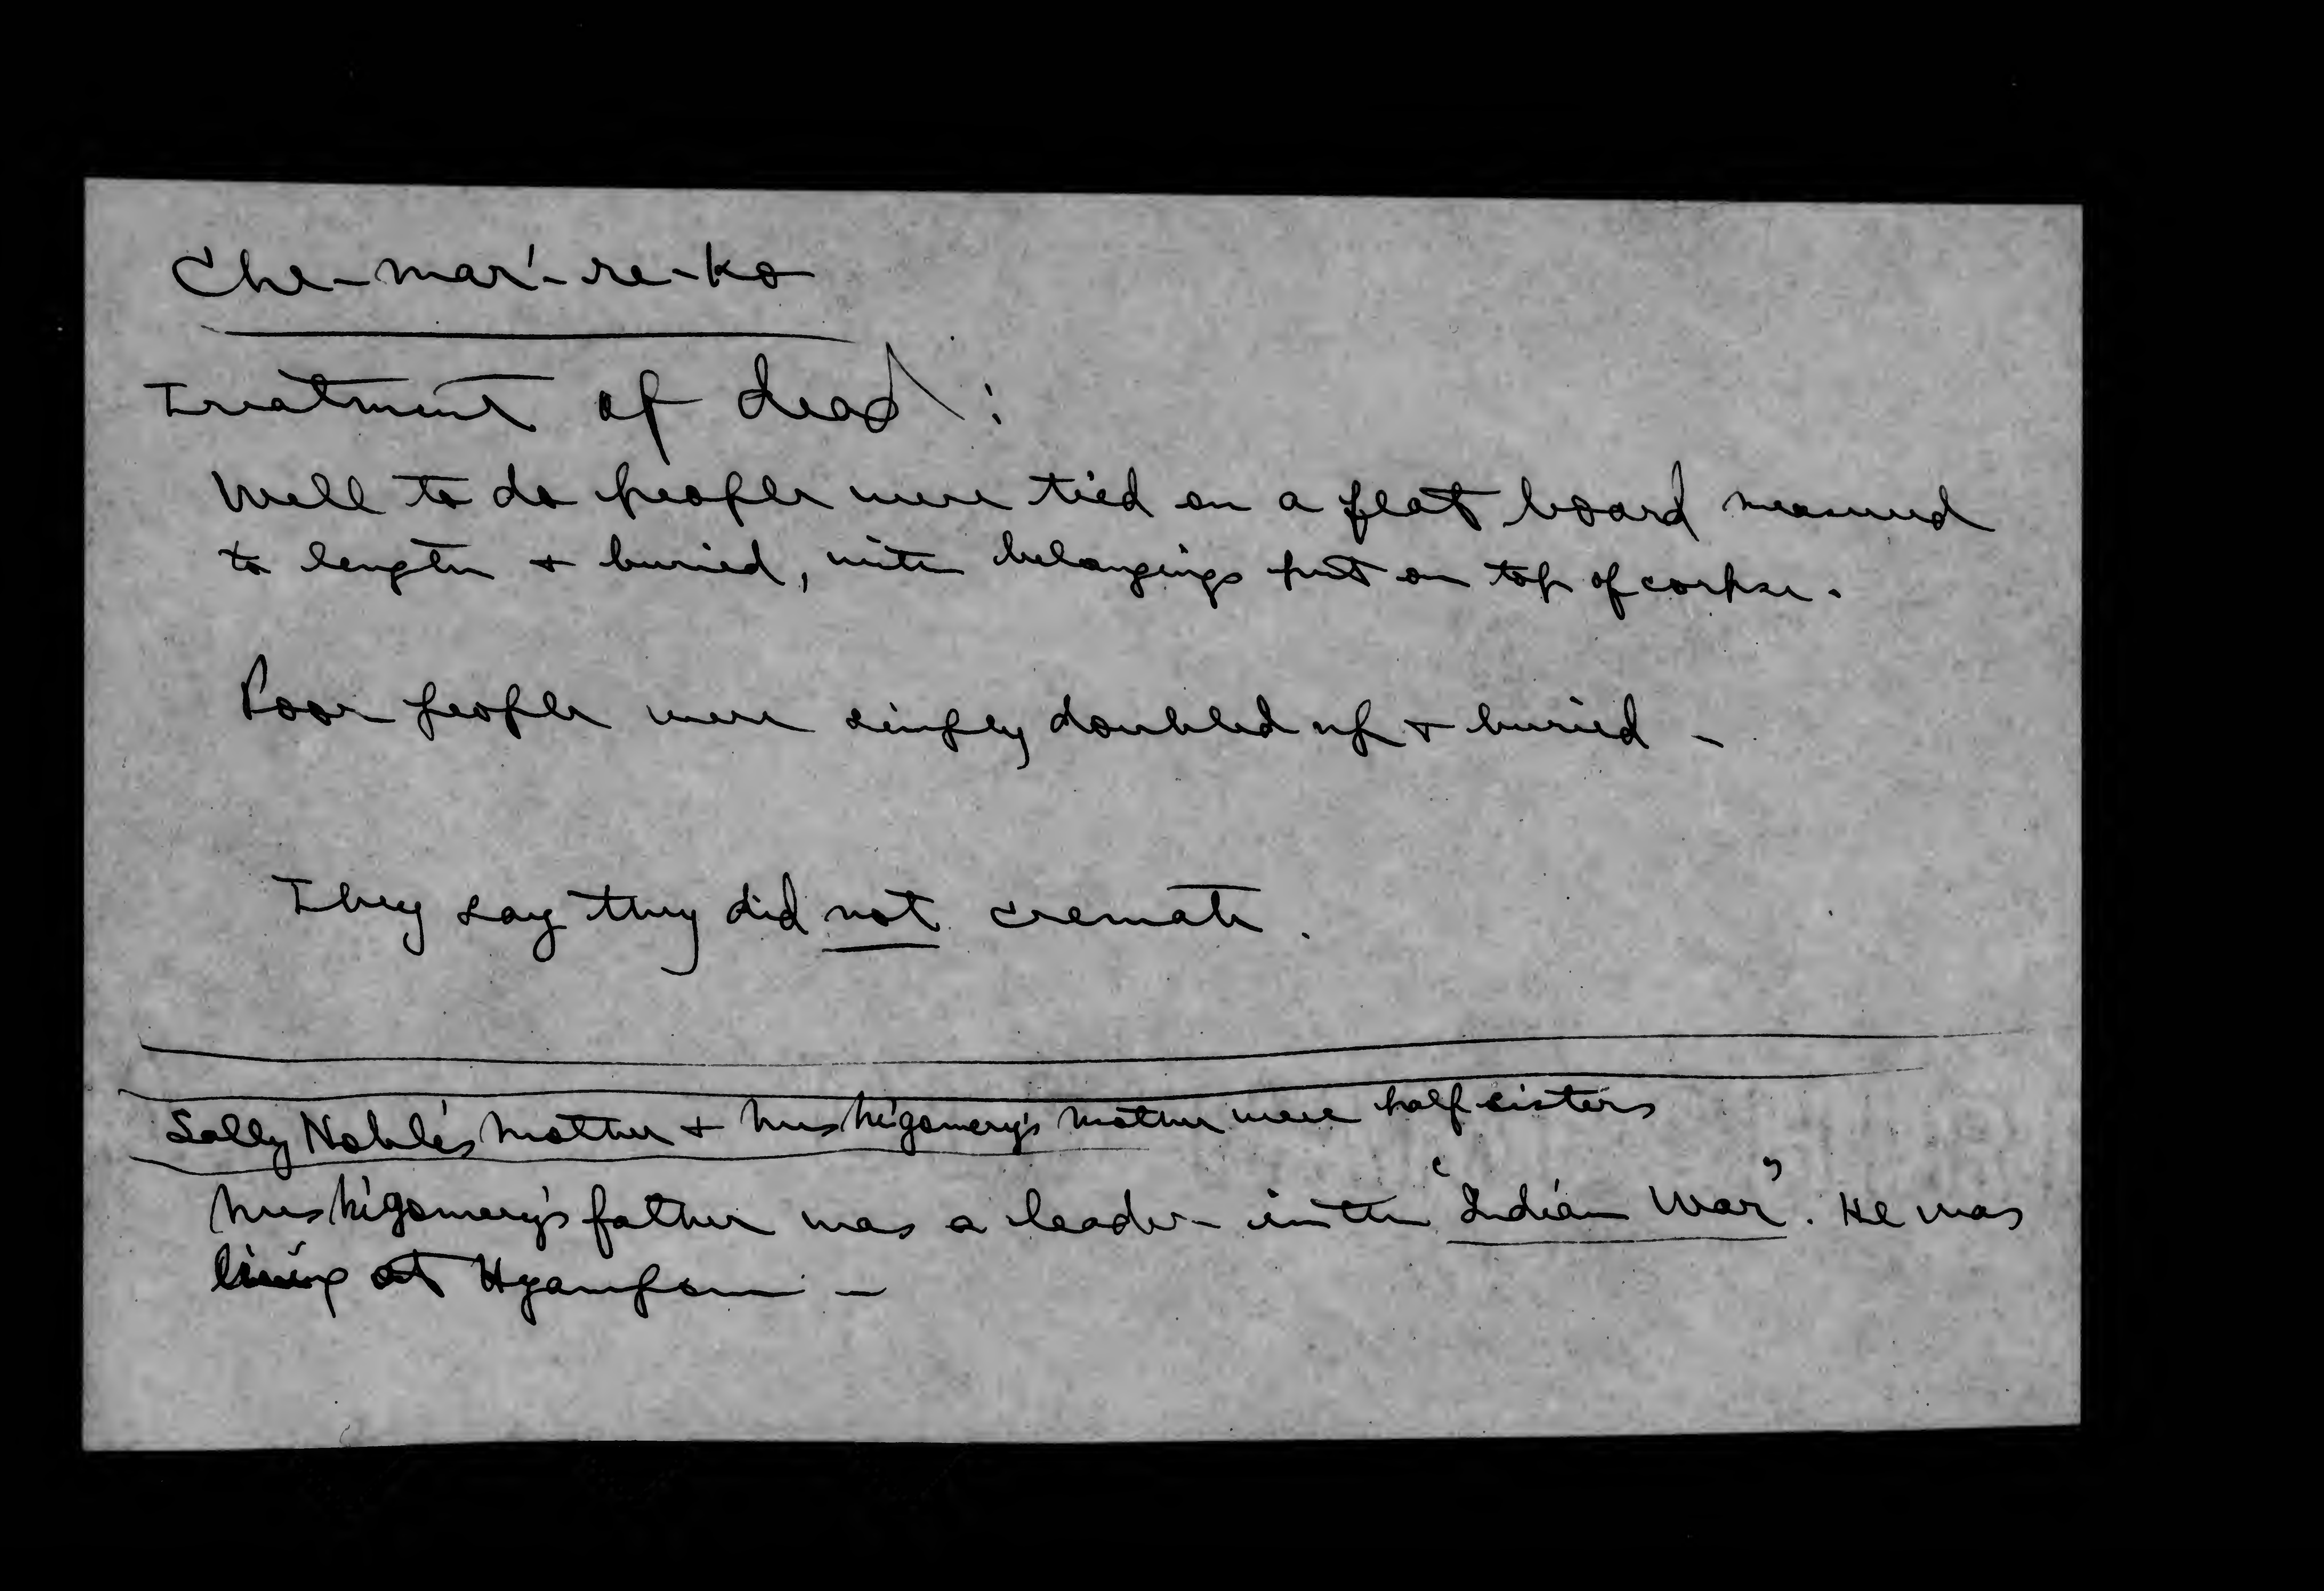 Che-mar'-re-ko
Treatment of dead:
Well to do people were tied on a flat board measured
to length + buried, with belongings put on top of corpse.
Poor people were simply doubled up + buried -
They say they did not cremate.
Sally Noble's mother + Mrs mother were half sisters
Mrs father was a leader in the "Indian War". He was
living at Hyampom -